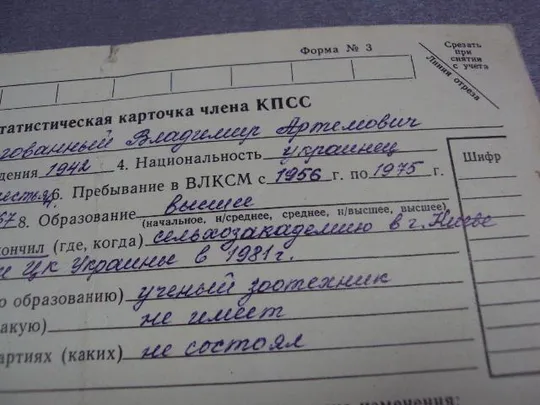 Форма № 3
Срезать
при
снятии
с учета
Линия отреза
татистическая карточка члена КПСС
гованный Владимир Артемович
дения 1942 4. Национальность украинец
Шифр
6. Пребывание в ВЛКСМ с 1956 г. по 1975 г.
67 8. Образование высшее
(начальное, н/среднее, среднее, н/высшее, высшее)
кончил (где, когда) сельхозакадемию в г. Киеве
ЦК Украины в 1981 г.
о образованию) ученый зоотехник
акую) не имеет
артиях (каких) не состоял
изменения: